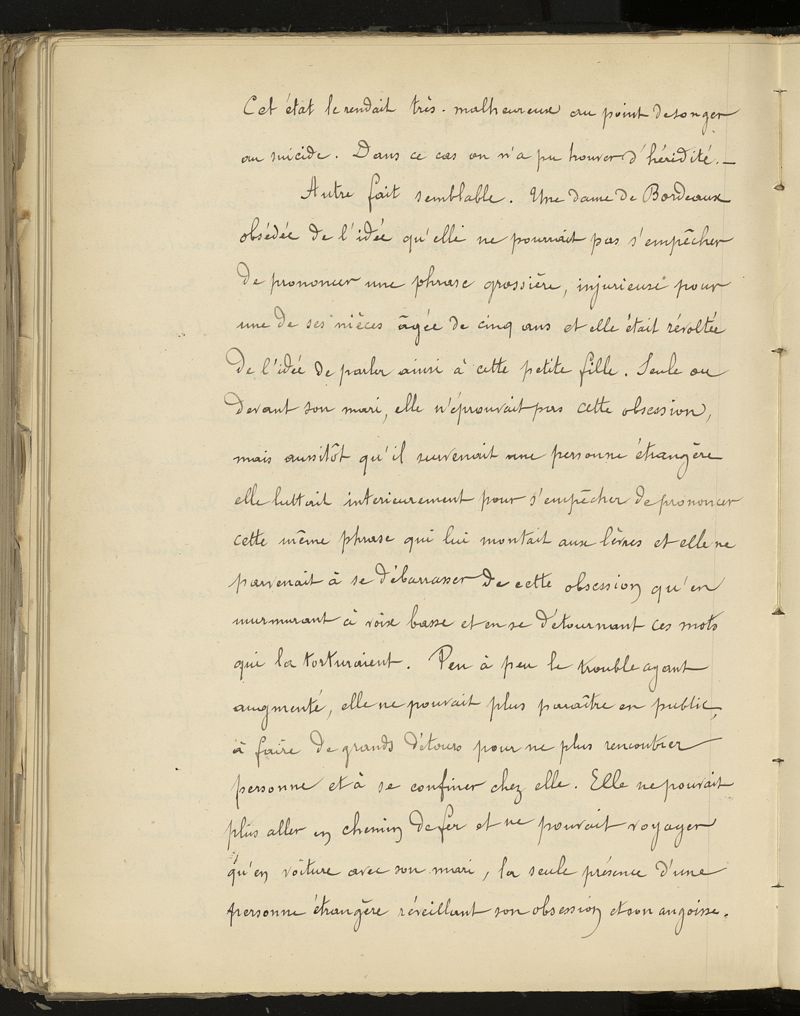 Cet état le rendait très-malheureux au point de songer
au suicide. Dans ce cas on n'a pu trouver d'hérédité. —
Autre fait semblable. Une dame de Bordeaux
obsédée de l'idée qu'elle ne pourrait pas s'empêcher
de prononcer une phrase grossière, injurieuse pour
une de ses nièces âgée de cinq ans et elle était révoltée
de l'idée de parler ainsi à cette petite fille. Seule ou
devant son mari, elle n'éprouvait pas cette obsession,
mais aussitôt qu'il survenait une personne étrangère
elle luttait interieurement pour s'empêcher de prononcer
cette même phrase qui lui montait aux lèvres et elle ne
parvenait à se débarrasser de cette obsession qu'en
murmurant à voix basse et en se détournant ces mots
qui la torturaient. Peu à peu le trouble ayant
augmenté, elle ne pouvait plus paraître en public,
à faire de grands détours pour ne plus rencontrer
personne et à se confiner chez elle. Elle ne pouvait
plus aller en chemin de fer et ne pouvait voyager
qu'en voiture avec son mari, la seule présence d'une
personne étrangère réveillant son obsession et son angoisse.